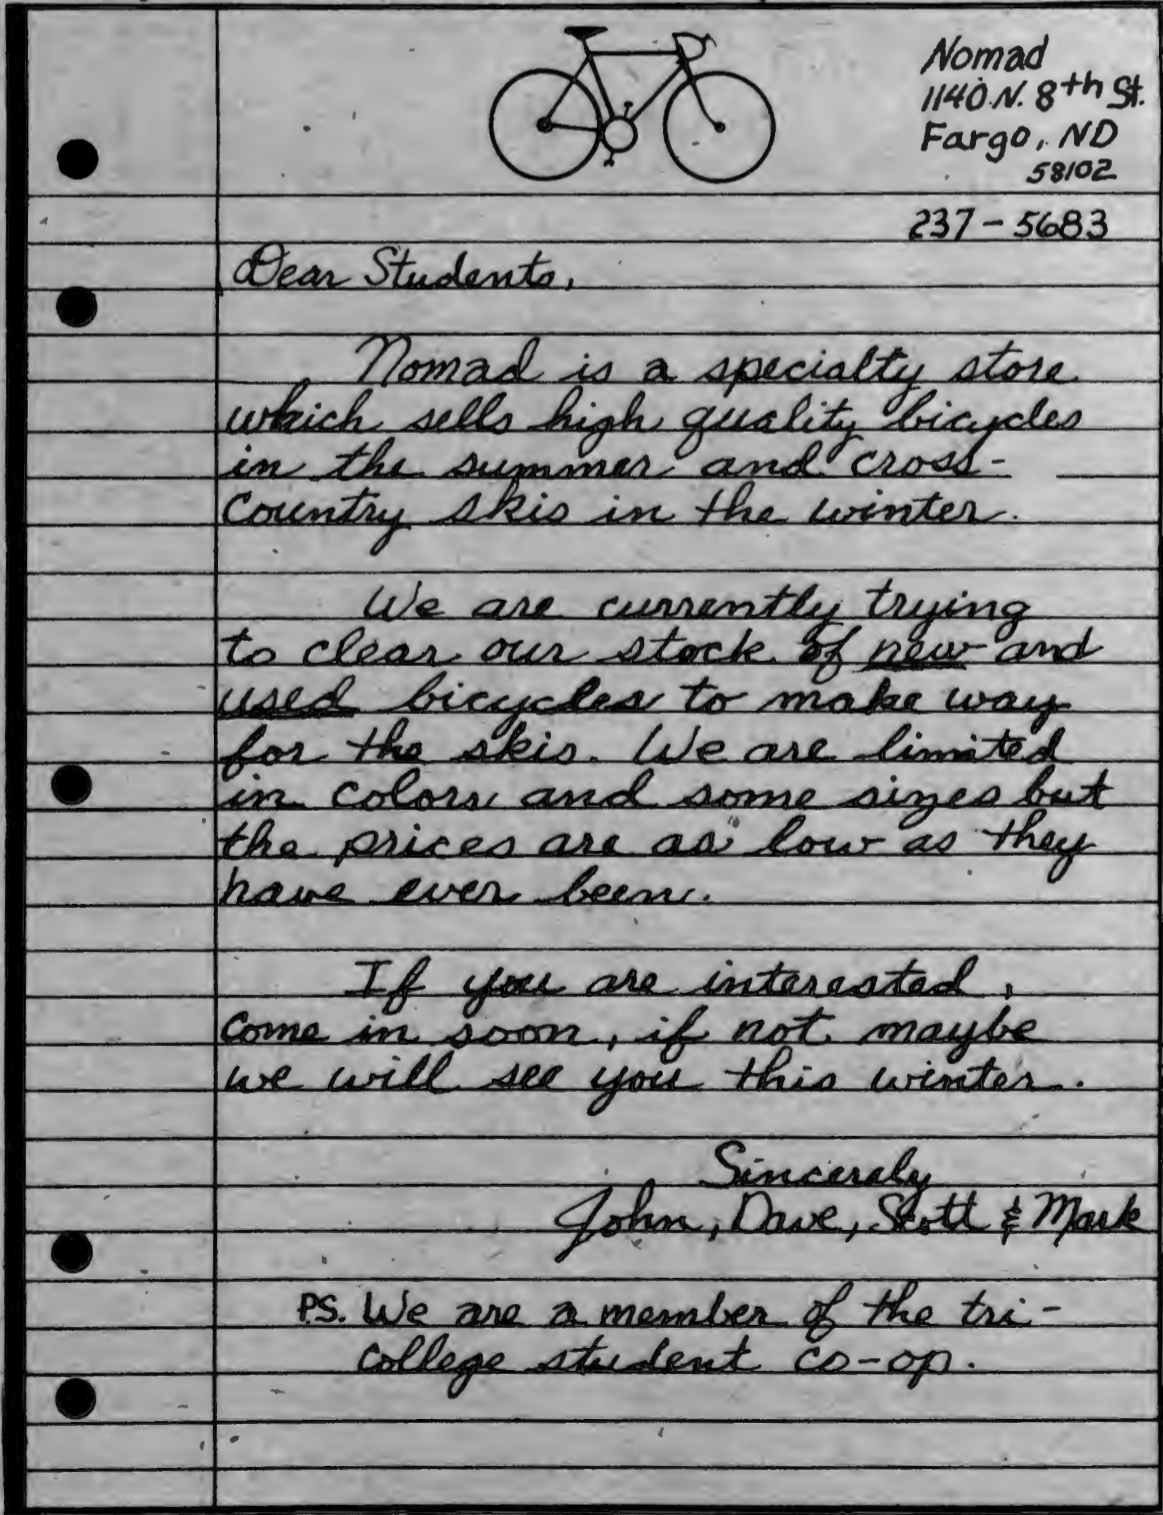 Nomad
1140 N. 8th St.
Fargo, ND
58102
237-5683
Dear Students,
Nomad is a specialty store
which sells high quality bicycles
in the summer and cross-
country skis in the winter.
We are currently trying
to clear our stock of new and
used bicycles to make way
for the skis. We are limited
in colors and some sizes but
the prices are as low as they
have ever been.
If you are interested,
come in soon, if not maybe
we will see you this winter.
Sincerely
John, Dave, Scott & Mark
P.S. We are a member of the tri-
college student co-op.